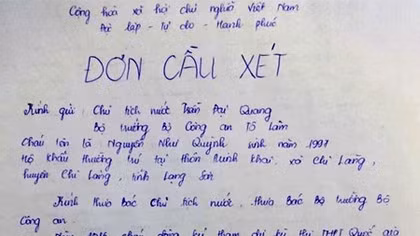 Cộng hòa xã hội chủ nghĩa Việt Nam
Độc lập - Tự do - Hạnh phúc
ĐƠN CẦU XÉT
Kính gửi : Chủ tịch nước Trần Đại Quang
Bộ trưởng Bộ Công an Tô Lâm
Cháu tên là Nguyễn Như Quỳnh sinh năm 1997
Hộ khẩu thường trú tại thôn Minh Khai, xã Chi Lăng,
huyện Chi Lăng, tỉnh Lạng Sơn
Kính thưa Bác Chủ tịch nước, thưa Bác Bộ trưởng Bộ
Công an
Năm 2015 cháu đăng kí tham dự kỳ thi THPT Quốc gia